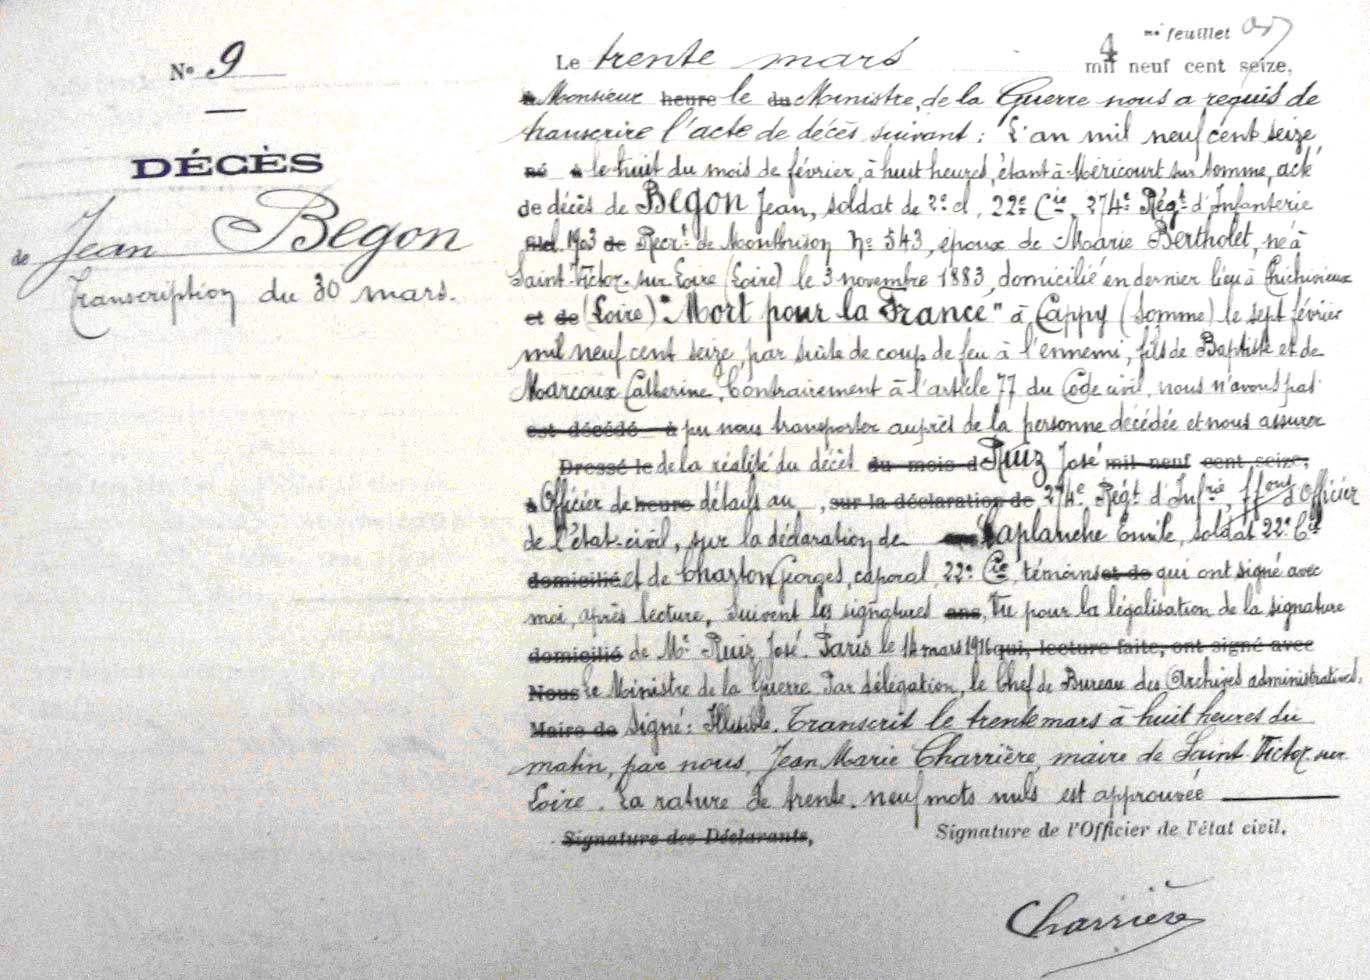 N° 9
DÉCÈS
de Jean Begon
Transcription du 30 mars.
4 me feuillet
Le trente mars mil neuf cent seize,
à Monsieur heure le du Ministre, de la Guerre nous a requis de
transcrire l'acte de décès suivant : L'an mil neuf cent seize
né à le huit du mois de février, à huit heures, étant à Méricourt sur Somme, acte
de décès de BEGON Jean, soldat de 2e cl, 22e Cie, 274e Régt d'Infanterie
1903 de Recrt de Montbrison N° 543, époux de Marie Bertholet, né à
Saint-Victor-sur-Loire (Loire) le 3 novembre 1883, domicilié en dernier lieu à
et de (Loire) "Mort pour la France" à Cappy (Somme) le sept février
mil neuf cent seize, par suite de coup de feu à l'ennemi, fils de Baptiste et de
Marcoux Catherine, Contrairement à l'article 77 du Code civil, nous n'avons pas
est décédé à pu nous transporter auprès de la personne décédée et nous assurer
Dressé le de la réalité du décès du mois d Ruiz José mil neuf cent seize,
à Officier de heure détails au , sur la déclaration de 274e Régt d'Infrie, ffons d'Officier
de l'état-civil, sur la déclaration de ans Laplanche Emile, soldat 22e Cie
domicilié et de Charton Georges, caporal, 22e Cie, témoins et de qui ont signé avec
moi, après lecture, Suivent les signatures ans, Vu pour la légalisation de la signature
domicilié de Mr Ruiz José. Paris le 14 mars 1916 qui, lecture faite, ont signé avec
Nous Le Ministre de la Guerre Par délégation, le Chef de Bureau des Archives administratives,
Maire de Signé : Illisible. Transcrit le trente mars à huit heures du
matin, par nous, Jean Marie Charrière, maire de Saint-Victor-sur-
Loire. La rature de trente-neuf mots nuls est approuvée
Signature des Déclarants,
Signature de l'Officier de l'état civil.
Charrière